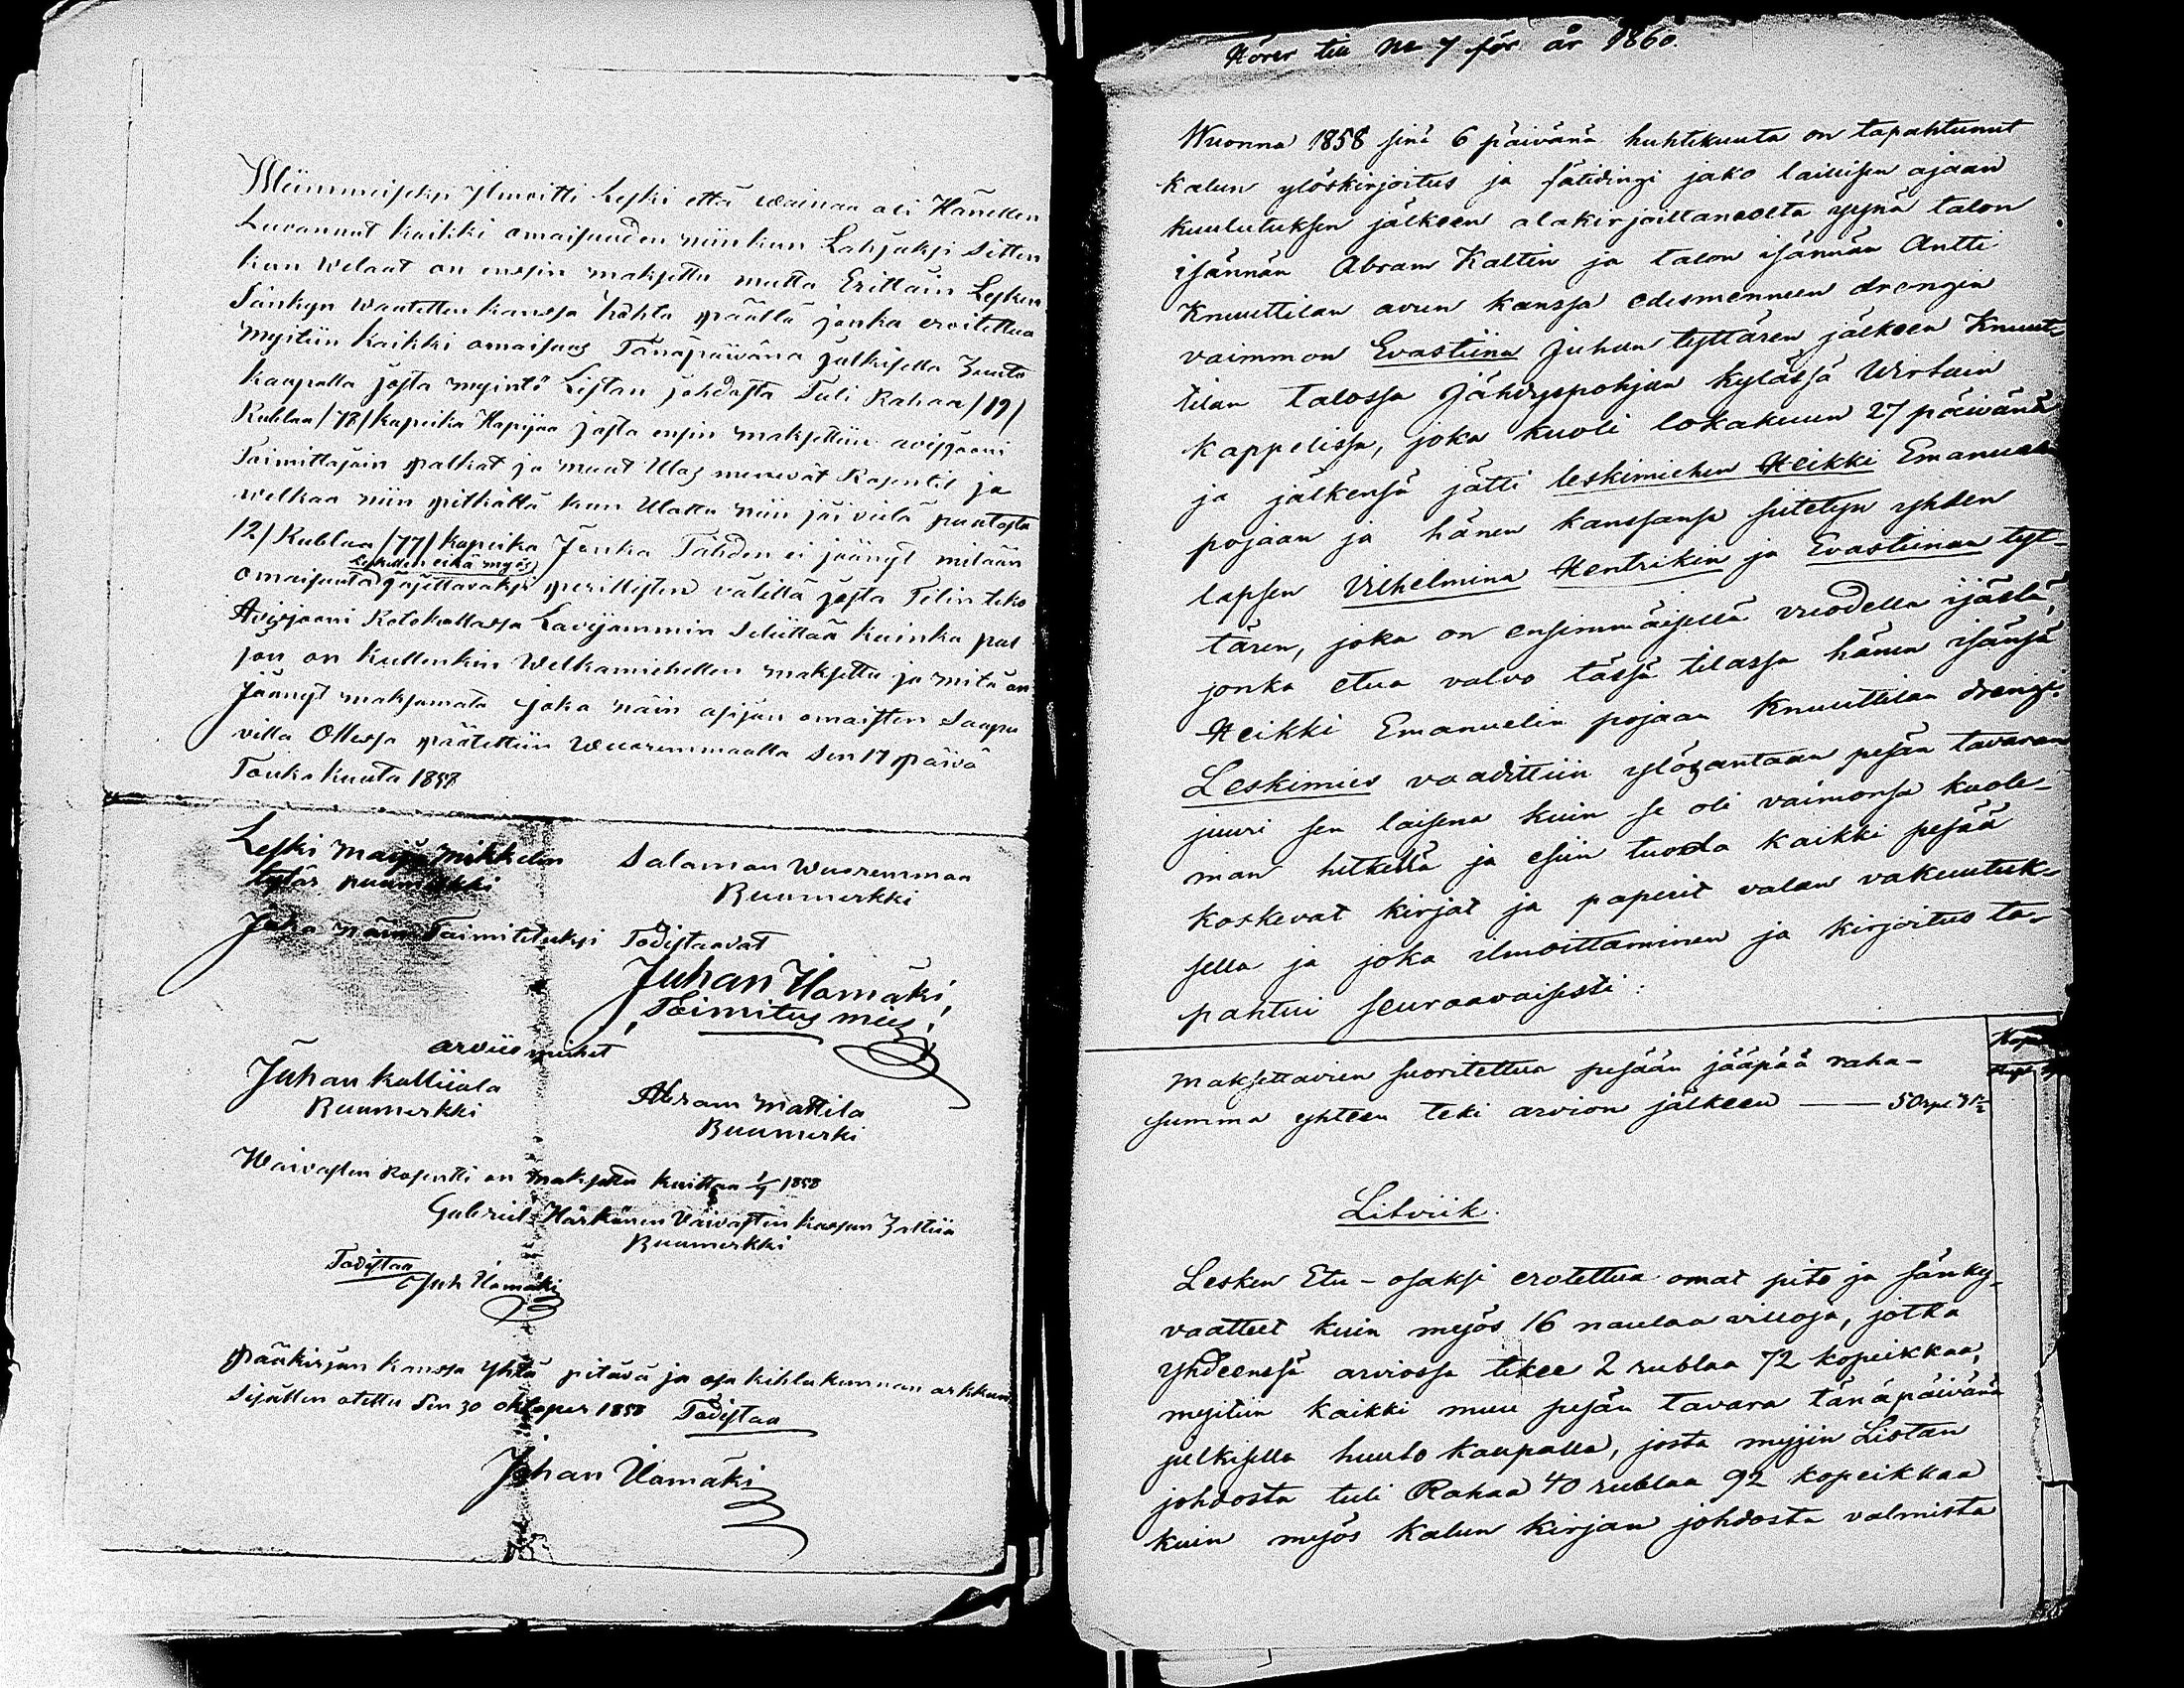 Wiimmeiseksi ilmoitti Leski että wainaa oli Hänellen
Luvannut kaikki omaisuuden niinkun Lahjaksi sitten
kun Welaat on ensin maksettu mutta Erittäin Lesken
Sänkyn waatetten kanssa kohta päältä jonka eroitettua
myitiin kaikki omaisuus Tänäpäiwänä julkisella huuto
kaupalla josta myintö Listan johdosta Tuli Rahaa /19/
Rublaa /78/ kopeika Hopijaa josta ensin maksettiin
Toimittajain palkat ja muut Ulos menevät Rosentit ja
welkaa niin pitkältä kun Ulattu niin jäi vielä puutosta
12/ Rublaa /77/ kopeika Jonka Tähden ei jäänyt mitään
Leskellen eikä myös
omaisuutta jajettavaksi perillisten välillä josta Tilin teko
kuinka pal
jon on kullenkin Welkamiehellen maksettu ja mitä on
Jäänyt maksamata joka näin asijan omaisten Saapu
villa Ollessa päätettiin Wuorenmaalla Sen 17 päivä
Touko kuuta 1858
Leski Maija Mikkelin
tytär puumerkki
Salaman Wuorenmaa
Buumerkki
Joko näin Toimitetuksi Todistaavat
Juhan Ilomäki
Toimitus mies
arviis miehet
Juhan Kalliiala
Buumerkki
Abram Mattila
Buumerki
Waivasten Rosentti on maksettu kuittaa 1858
Gabriel Härkönen Vaivasten kassan
Buumerkki
Todistaa
Juh Ilomäki
Pääkirjan kanssa yhtä pitävä ja osa kihlakunnan arkkuun
Sisällen otettu Sen 30 oktoper 1858 Todistaa
Johan Ilomäki
Hörer till No 7 för år 1860.
Wuonna 1858 sinä 6 päivänä huhtikuuta on tapahtunut
kalun ylöskirjoitus ja jako laillisen ajaan
kuulutuksen jälkeen alakirjoittaneelta syynä talon
isännän Abram Kaltin ja talon isännän Antti
Knuuttilan avun kanssa edesmenneen drengin
vaimmon Evastiina Juhan tyttären jälkeen Knuut-
tilan talossa Jähdyspohjan kylässä Wirtain
kappelissa, joka kuoli lokakuun 27 päivänä
ja jälkensä jätti leskimiehen Heikki Emanuelin
pojaan ja hänen kanssansa siitetyn yhden
lapsen Vilhelmina Hentrikin ja Evastiinan tyt-
tären, joka on ensimmäisellä vuodella ijästä,
jonka etua valvo tässä tilassa hänen isänsä
Heikki Emanuelin pojaan Knuuttilan drengi.
Leskimies vaadittiin ylösantaan pesän tavaran
juuri sen laisena kuin se oli vaimonsa kuole-
man hetkellä ja esiin tuoda kaikki pesää
koskevat kirjat ja paperit valan vakuutuk-
sella ja joka ilmoittaminen ja kirjoitus ta-
pahtui seuraavaisesti:
Maksettavien suoritettua pesään jääpää raha-
summa yhteen teki arvion jälkeen —
Litviik.
Lesken Etu-osaksi erotettua omat pito ja sänky-
vaatteet kuin myös 16 naulaa villoja, jotka
yhdeenssä arviossa tekee 2 rublaa 72 kopeikkaa,
myitiin kaikki muu pesän tavara tänäpäivänä
julkisella huuto kaupalla, josta myyjin Listan
johdosta tuli Rahaa 40 rublaa 92 kopeikkaa
kuin myös kalun kirjan johdosta valmista